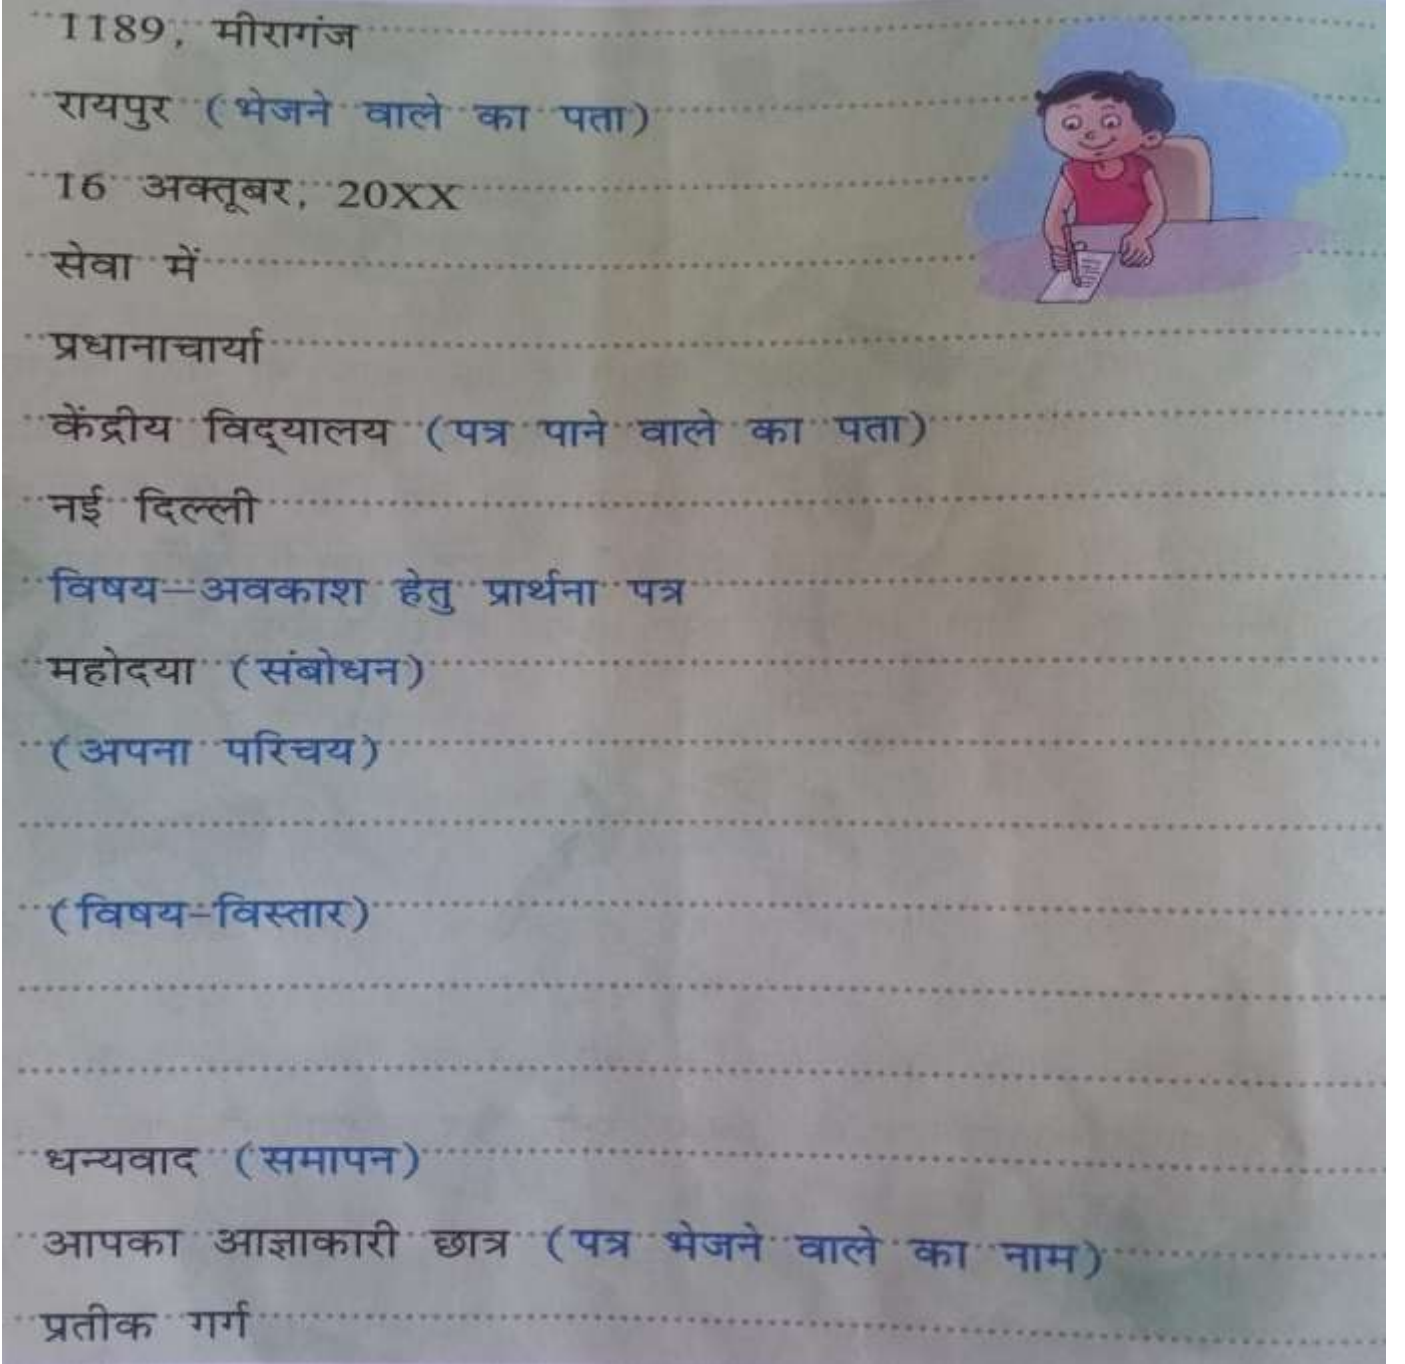 1189, मीरागंज
रायपुर (भेजने वाले का पता)
16 अक्तूबर, 20XX
सेवा में
प्रधानाचार्या
केंद्रीय विद्‌यालय (पत्र पाने वाले का पता)
नई दिल्ली
विषय–अवकाश हेतु प्रार्थना पत्र
महोदया (संबोधन)
(अपना परिचय)
(विषय-विस्तार)
धन्यवाद (समापन)
आपका आज्ञाकारी छात्र (पत्र भेजने वाले का नाम)
प्रतीक गर्ग